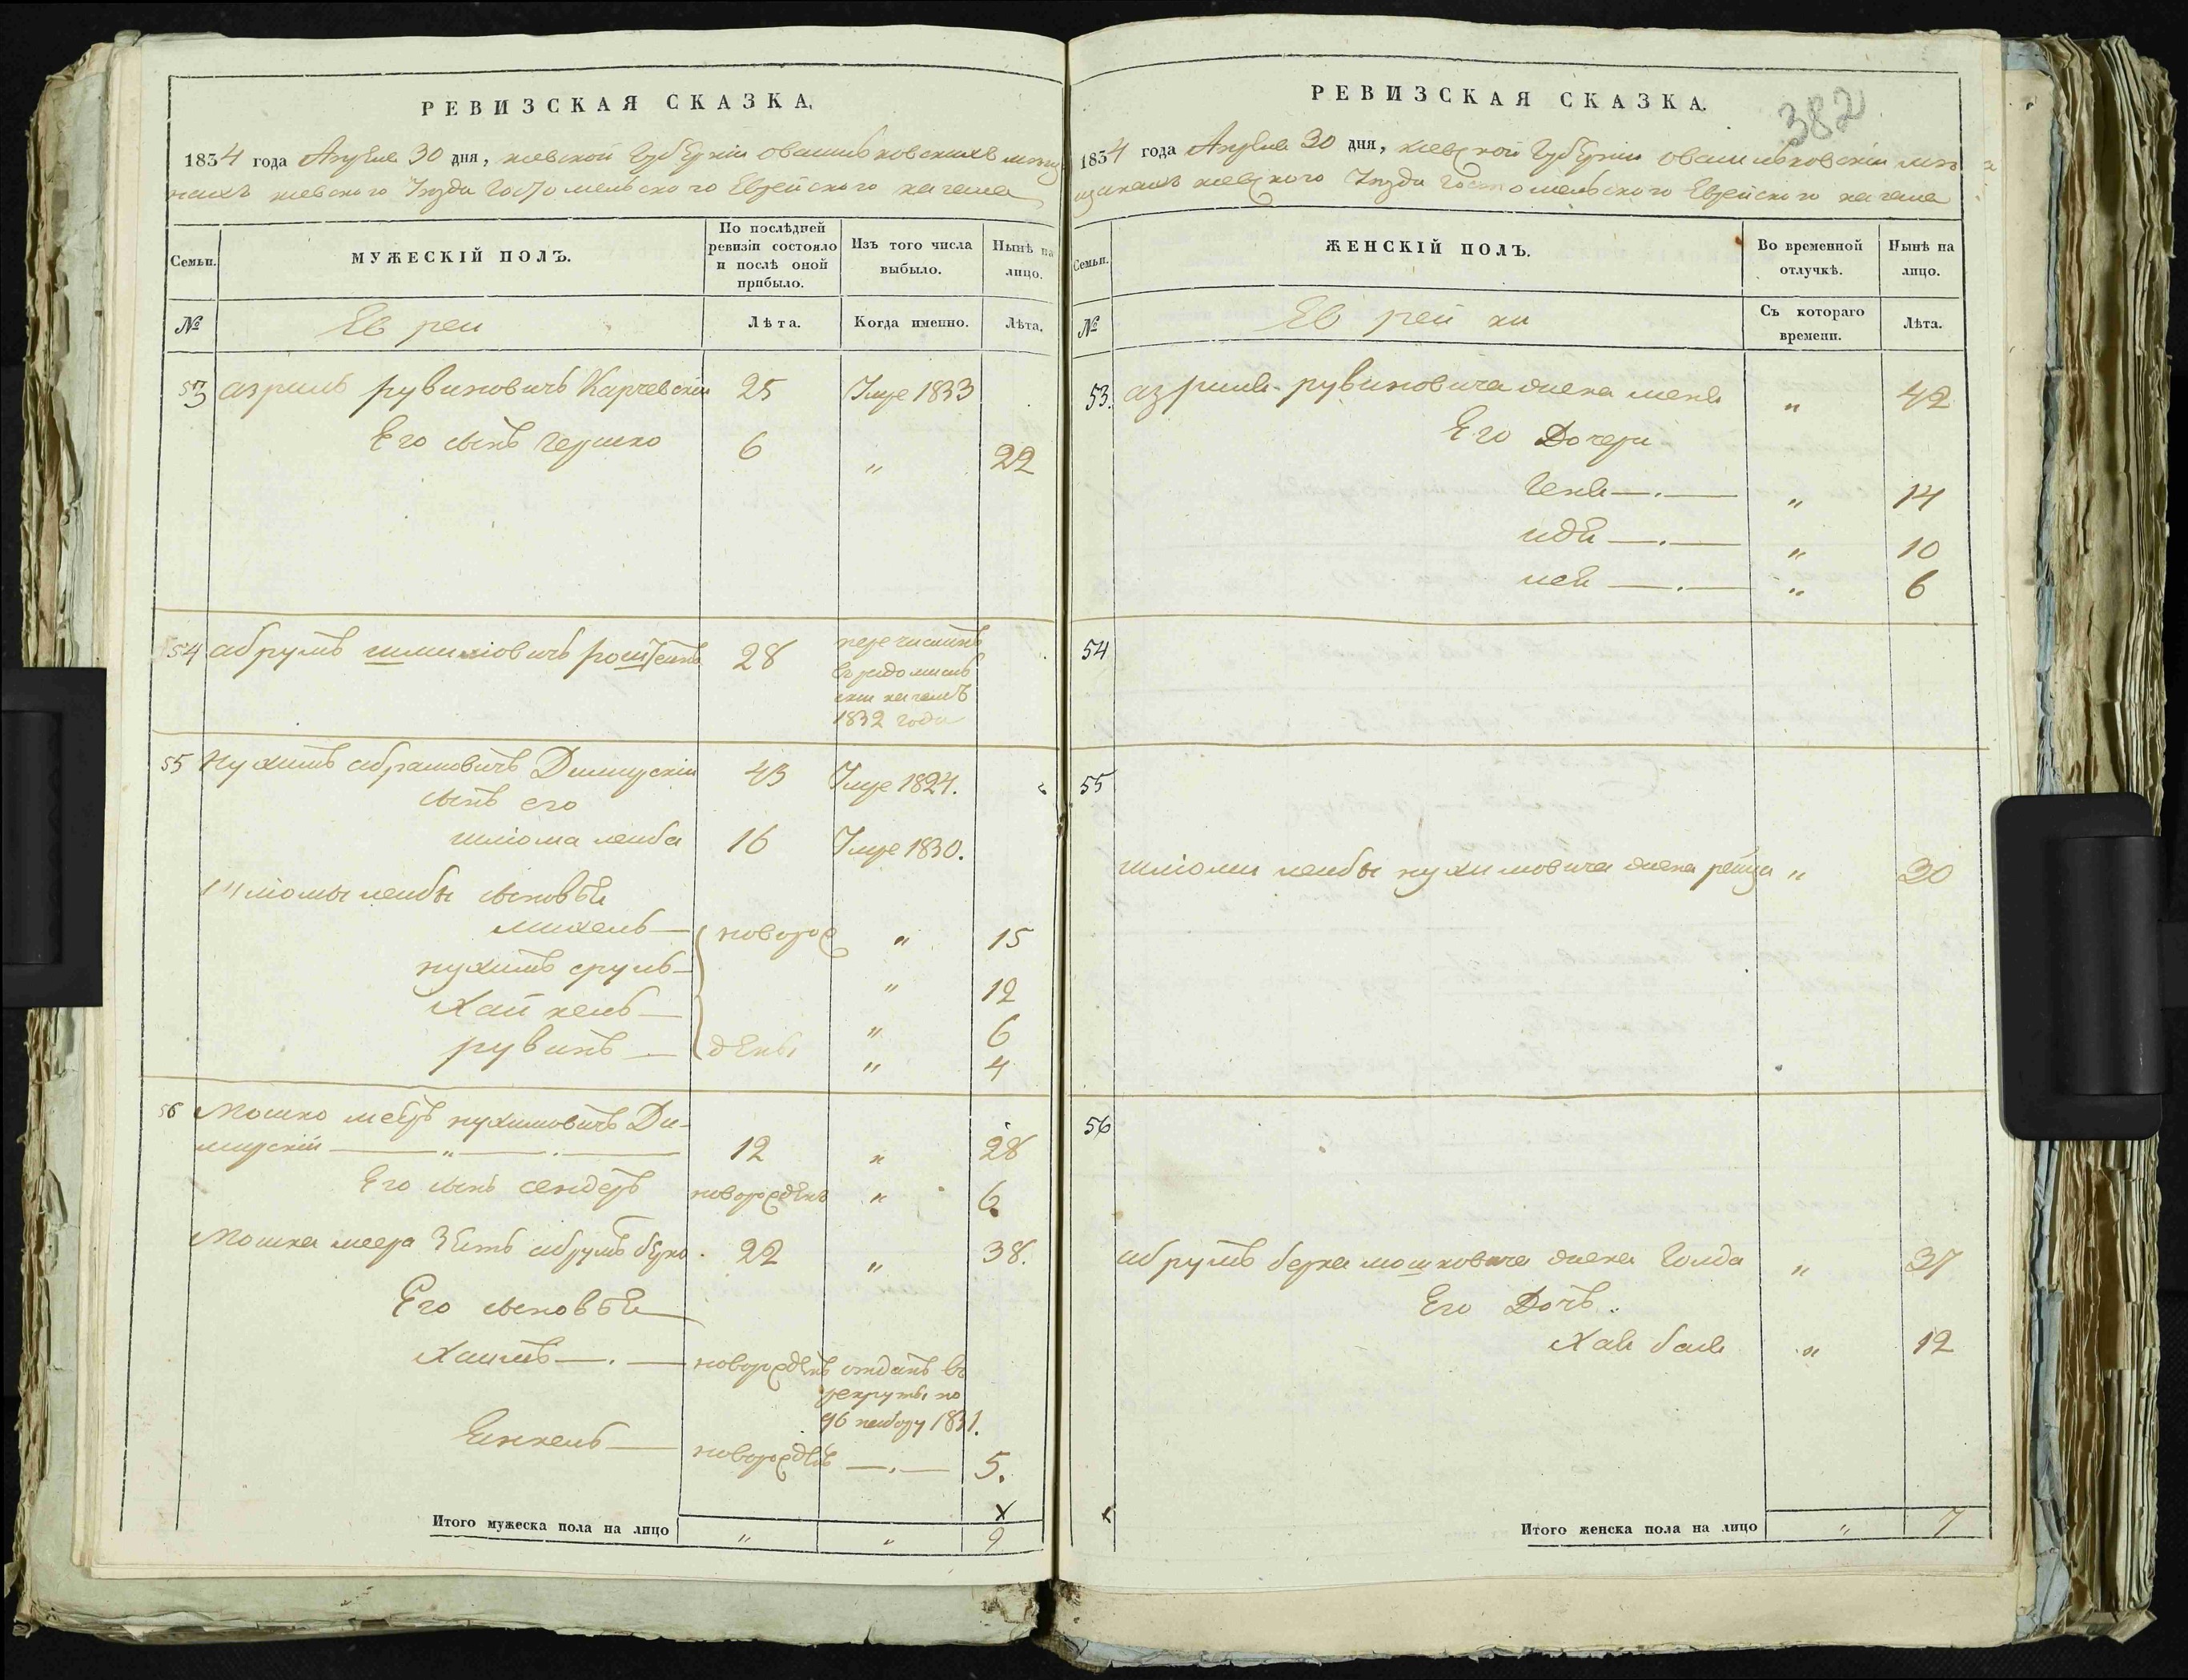 РЕВИЗСКАЯ СКАЗКА.
1834 года Апреля 30 дня, киевской губернии о васильковских мещанахъ киевского уезда Гостомельского Еврейского кагала
Семьи.
МУЖЕСКІЙ ПОЛЪ.
По послѣдней ревизіи состояло и послѣ оной прибыло.
Изъ того числа выбыло.
Нынѣ на лицо.
№
Евреи
Лѣта.
Когда именно.
Лѣта.
53 азриль рувиновичъ Карчевскій 25 Умре 1833
Его сынъ гершко 6 " 22
54 абрумъ 28 перечисленъ
въ радомысль
скій кагалъ
1832 года
55 Нухимъ абрамовичъ Димирскій 43 Умре 1824.
сынъ его
шліома лейба 16 Умре 1830.
Шліомы лейбы сыновья
михель — новорож " 15
нухимъ сруль — " 12
Хайкель — " 6
рувинъ — дены " 4
56 Мошко меер нухимовичъ Ди-
мирскій — " — . — 12 " 28
Его сынъ сендер новорожденъ " 6
Мошка меера зять абрумъ берко. 22 " 38.
Его сыновья
Хаимъ — . — новорожденъ отданъ въ
рекруты по
96 набору 1831.
Енкель — новорожденъ — . — 5.
х
Итого мужеска пола на лицо " " 9
РЕВИЗСКАЯ СКАЗКА.
382
1834 года Апреля 30 дня, киевской губернии о васильковскихъ мещанахъ киевского уезда Гостомельского Еврейского кагала
Семьи.
ЖЕНСКІЙ ПОЛЪ.
Во временной отлучкѣ.
Нынѣ на лицо.
№
Еврейки
Съ котораго времени.
Лѣта.
53. азриля рувиновича жена меня " 42
Его Дочери
Геня — . — " 14
идя — . — " 10
— . — " 6
54
55
шліоми лейбы нухимовича жена рейза " 30
56
абрумъ берка мошковича жена Голда " 37
Его Дочь.
Хая бася " 12
х
Итого женска пола на лицо " 7